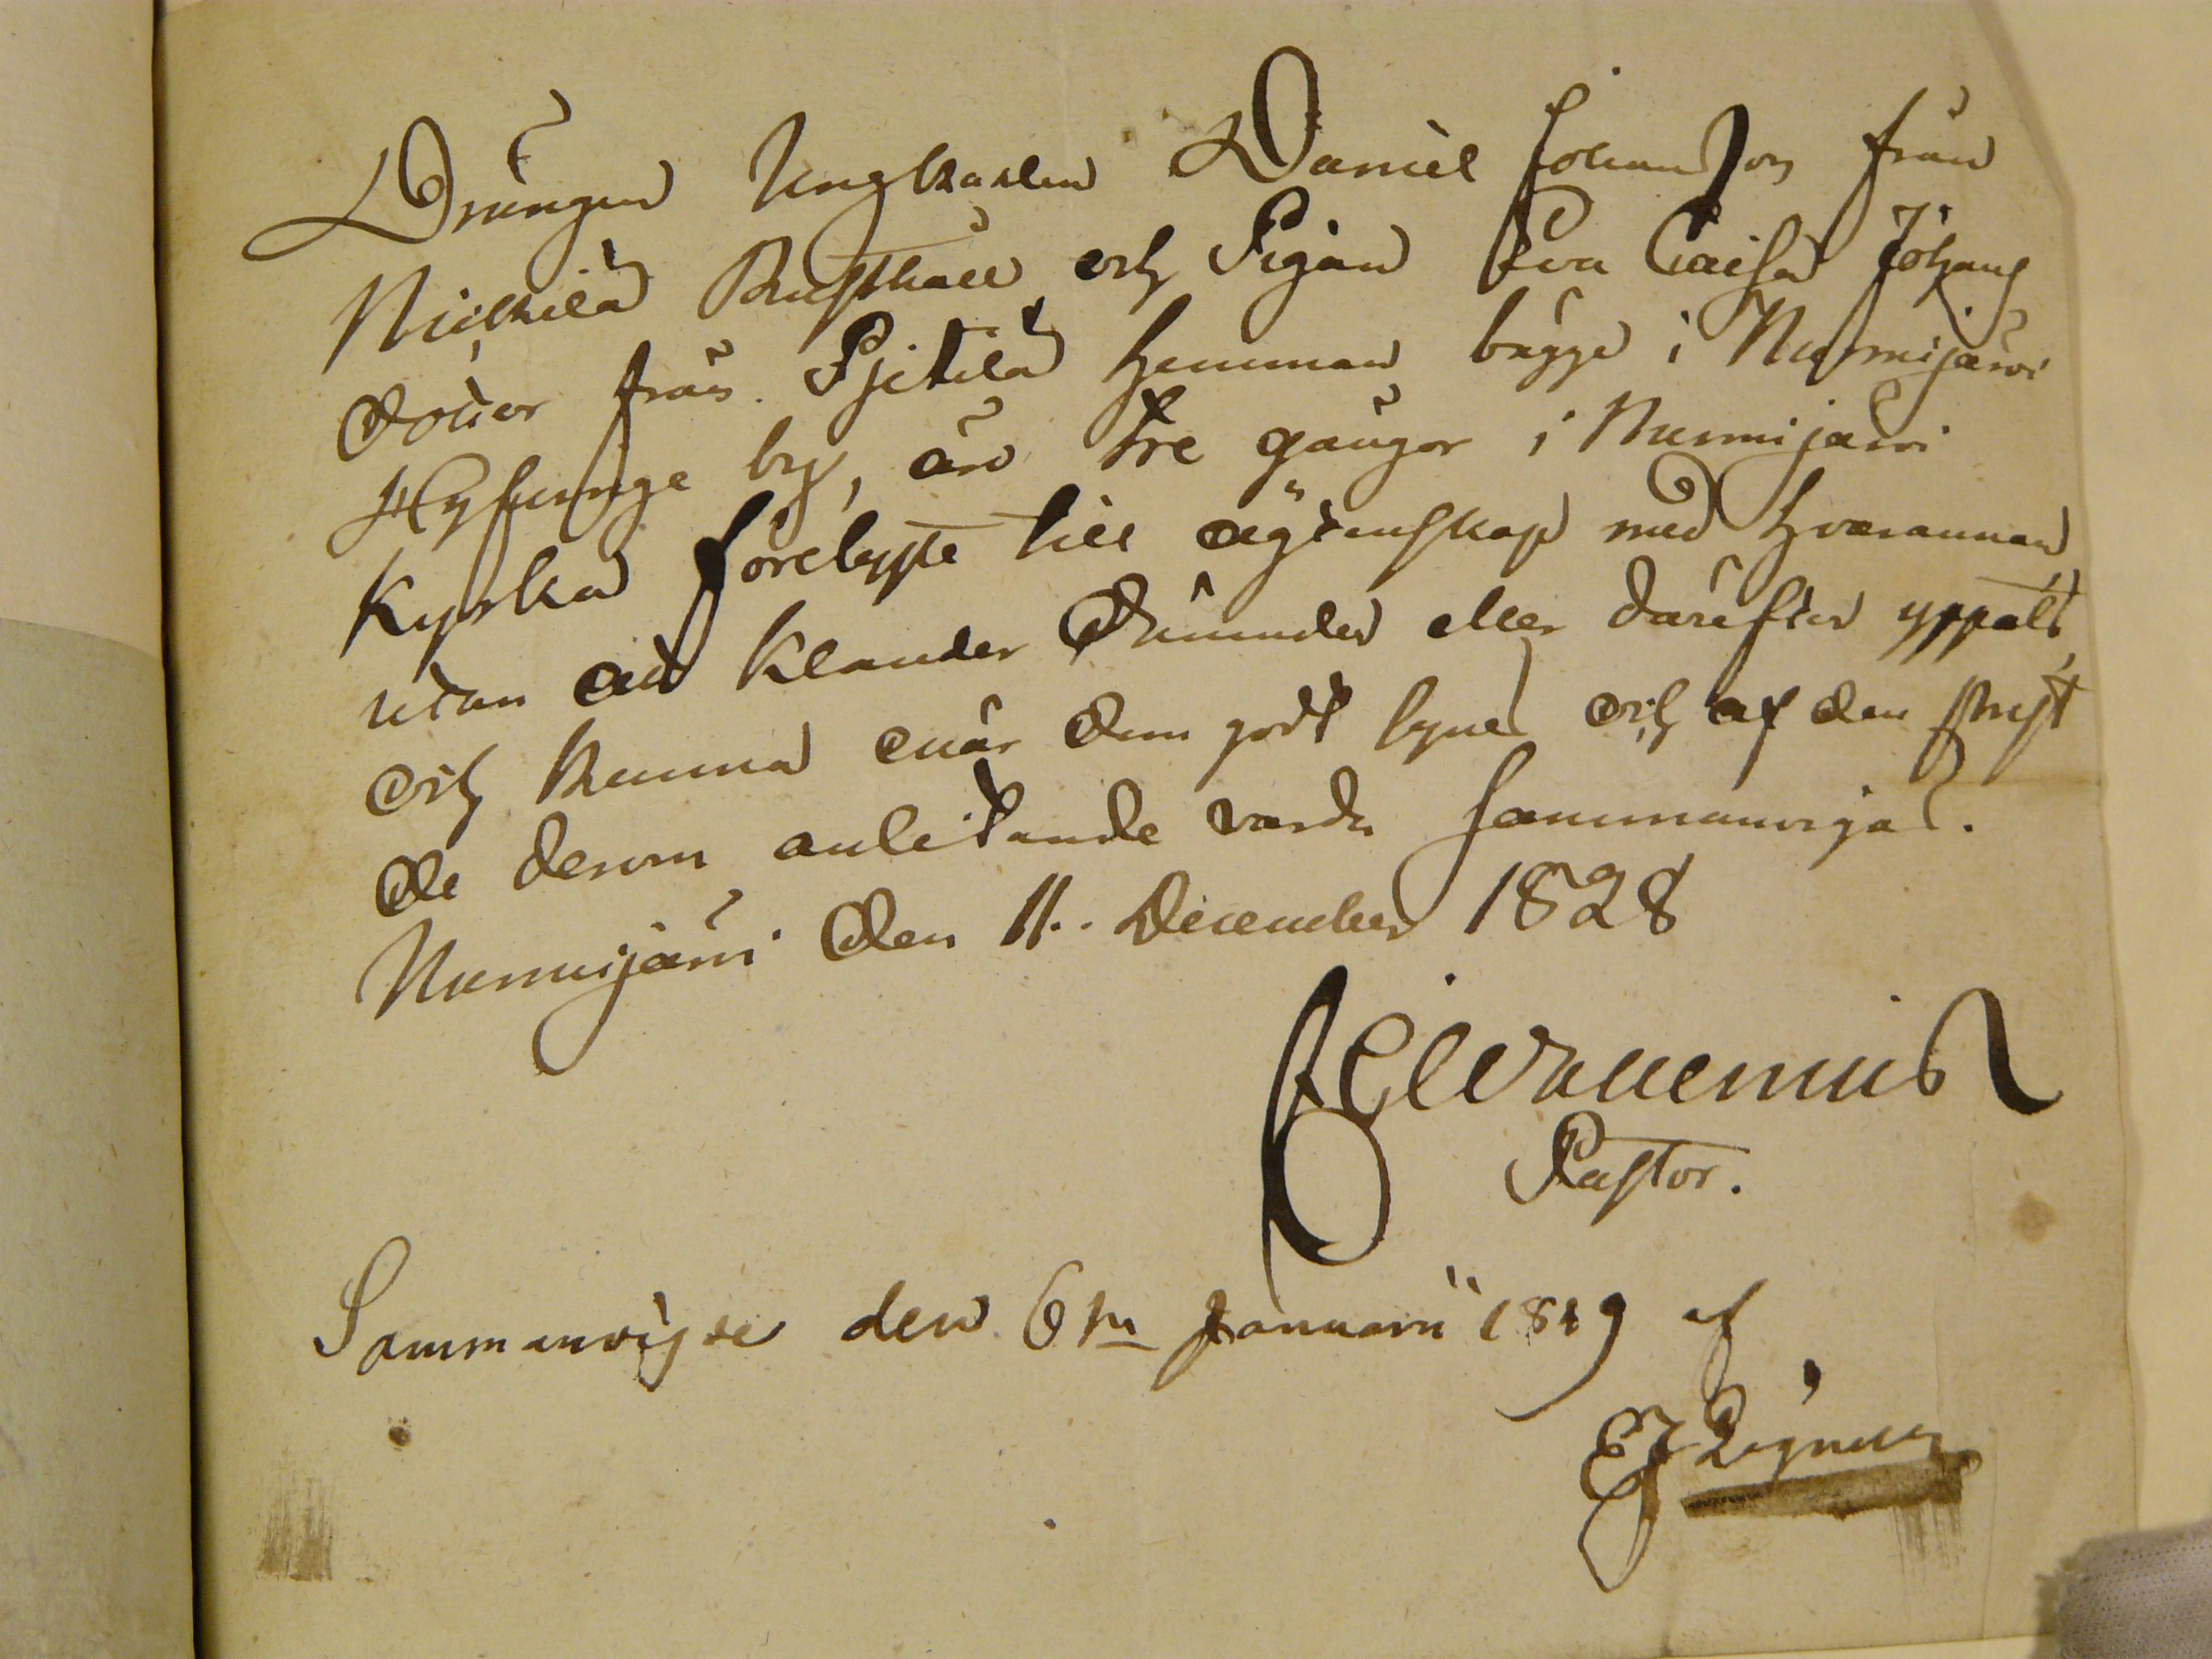 Drängen Ungkarlen Daniel Johansson från
Nickilä Rusthåll och Pigan Eva Caisa Johans
dotter från Pjetilä hemman bägge i Nurmijärvi
Hyfvinge by, äro tre gånger i Nurmijärvi
Kyrka förelyste till ägtenskap med hvarannan
utan att klander derunder eller därefter yppats,
och kunna när dem godt synes och af den prest
de derom anlitande varda sammanvigas.
Nurmijärvi den 11. December 1828
Pastor.
Sammanvigde den 6te Januarii 1829 af